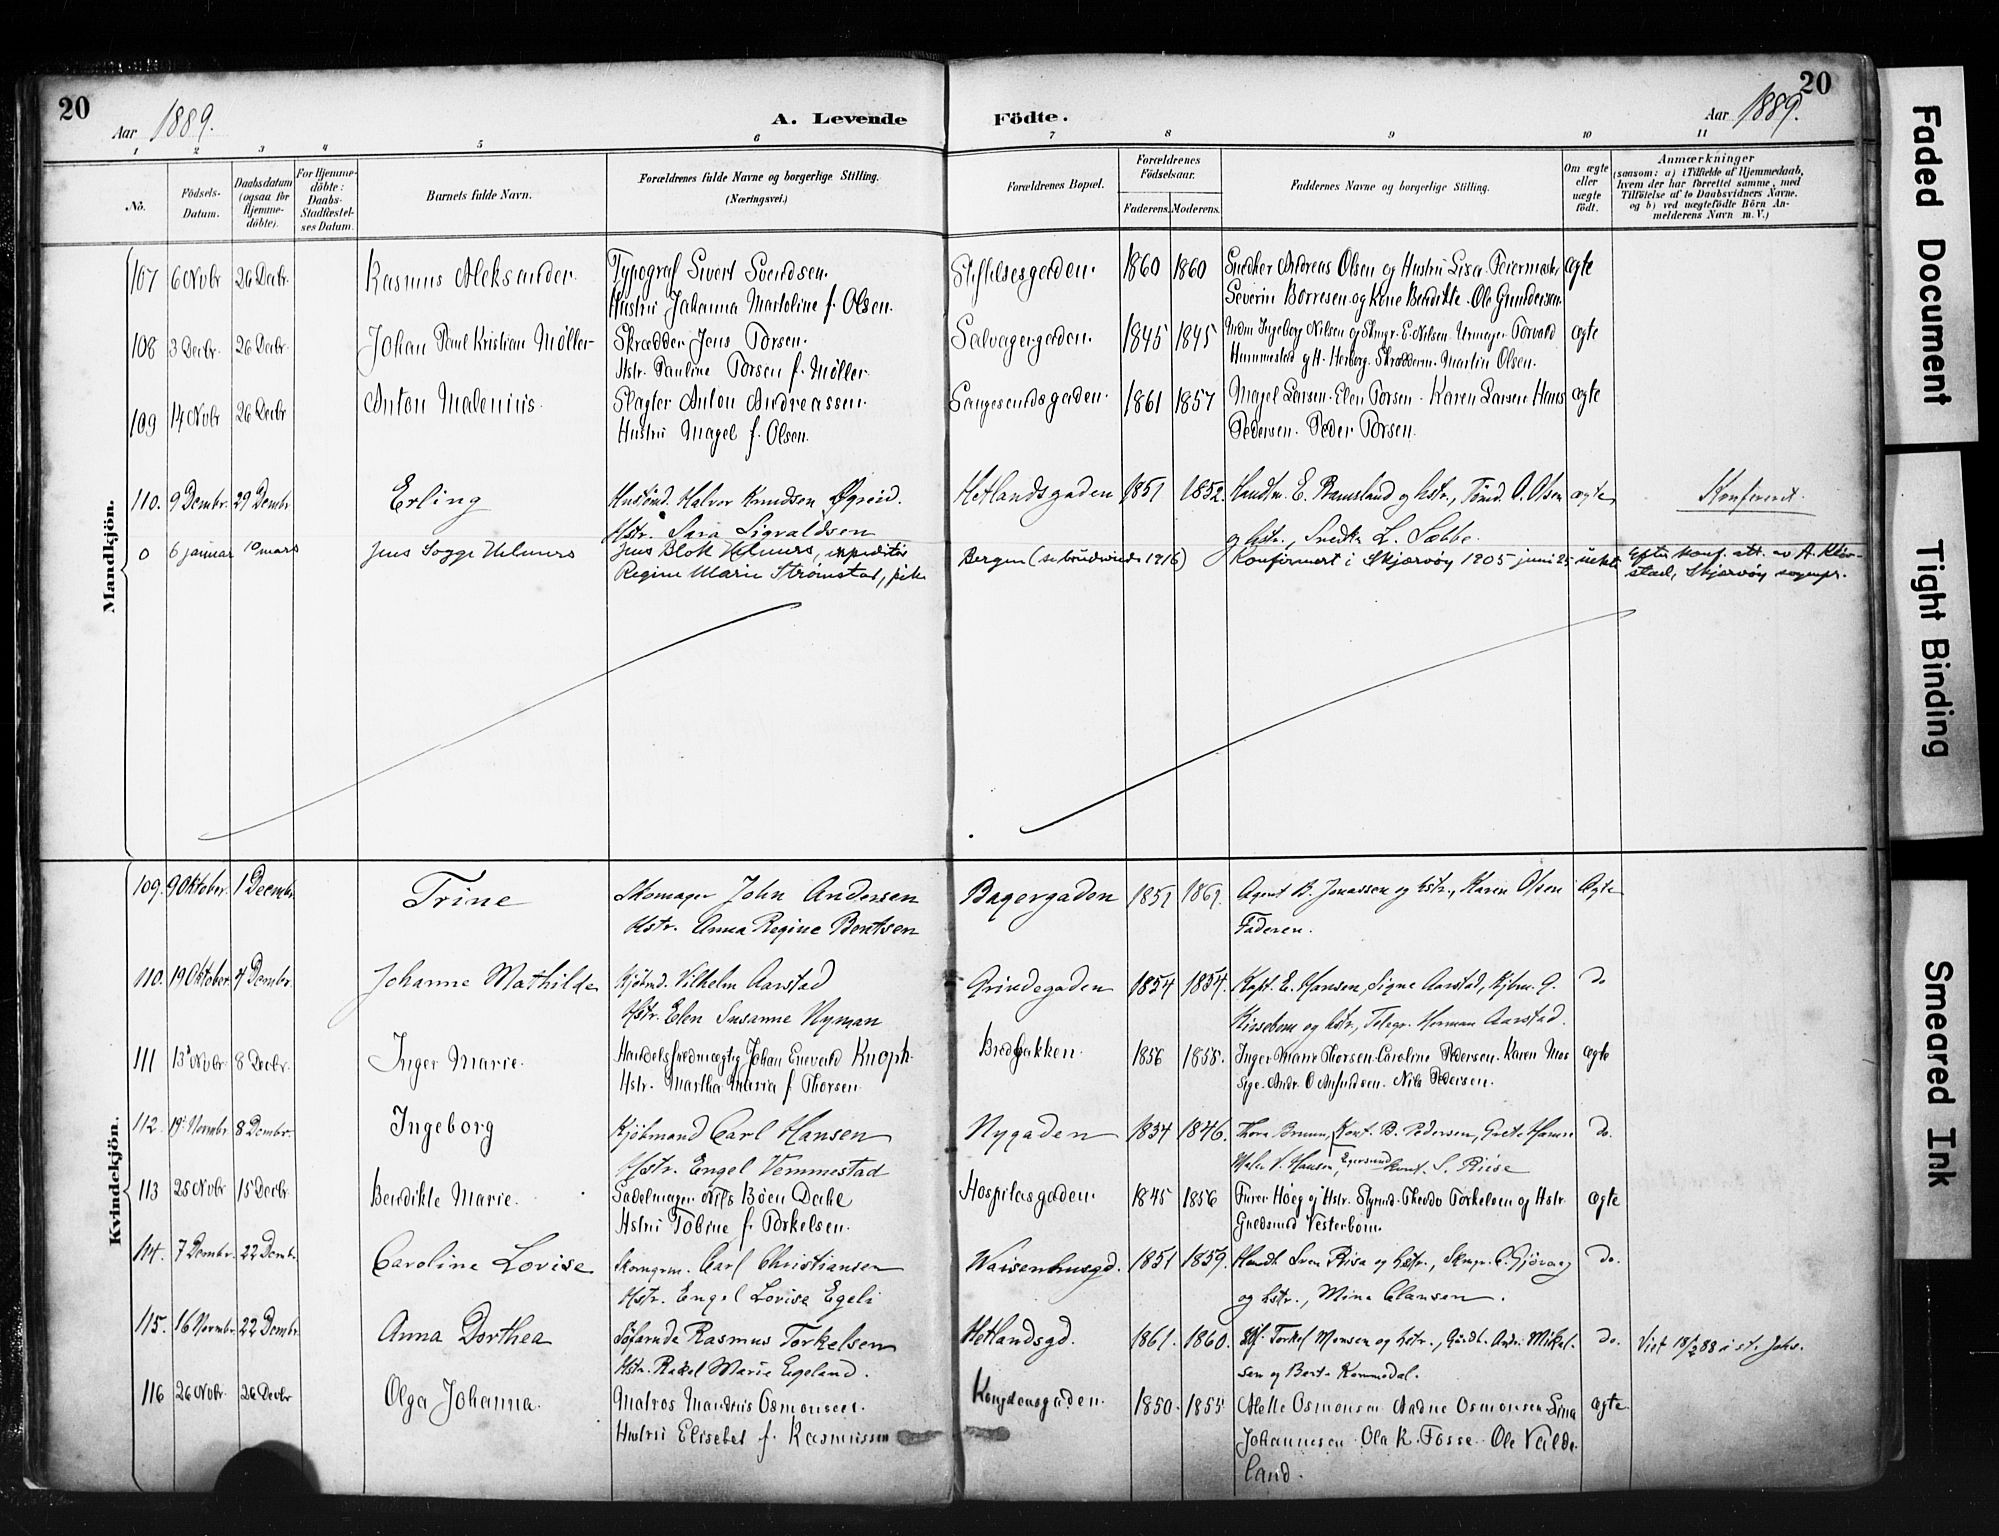 20
Aar 1889.
A. Levende
Födte.
Aar 1889.
20
1 2 3 4 5 6 7 8 9 10 11
No.
Födsels-Datum.
Daabsdatum (ogsaa for Hjemme-döbte).
For Hjemme-döbte: Daabs-Stadfæstel-ses Datum.
Barnets fulde Navn.
Forældrenes fulde Navne og borgerlige Stilling. (Næringsvei.)
Forældrenes Bopæl.
Forældrenes Födselsaar.
Faderens. Moderens.
Faddernes Navne og borgerlige Stilling.
Om ægte eller uægte født.
Anmærkninger
(saasom: a) i Tilfælde af Hjemmedaab, hvem der har forrettet samme, med Tilföielse af to Daabsvidners Navne. og b) ved uægtefödte Börn An-melderens Navn m. V.)
Mandkjön.
107 6 Novbr 26 Decbr. Rasmus Aleksander. Typograf Sivert Svendsen. Stiftelsesgaden. 1860 1860 Snedker Andreas Olsen og Hustru Lisa. Feiermester ægte
Hustru Johanna Martoline f. Olsen. Severin Børresen og Kone Bendikte. Ole Gundersen.
108 3 Decbr. 26 Decbr. Johan Paul Kristian Møller Skrædder Jens Torsen. Salvagergaden. 1845 1845 Mdm Ingeborg Nilsen og Skmgr. E. Nilsen Urmager Torvald ægte
Hstr. Pauline Torsen f. Møller. Hummestad og H. Skrædderm. Martin Olsen.
109 14 Novbr 26 Decbr Anton Malenius. Slagter Anton Andreassen. Langesundsgaden. 1861 1857 Magel Larsen. Elen Torsen. Karen Larsen Hans ægte
Hustru Magel f. Olsen. Pedersen. Peder Torsen.
110. 9 Decmbr. 29 Decmbr Erling Halvor Knudsen Øgreid. Hetlandsgaden 1851 1852. Handlm. E. Ramsland og hstr., O. Olsen ægte Konfirmert.
Hstr. Sara Sigvaldsen og hstr., Snedker L. Sæbbe.
0 6 januar 10 mars Jens Sogge Helmers Jens Blok Helmers, expeditør Bergen (se brudevied 1916) Konfirmert i Skjærvøy 1905 juni 25 uekte Efter konf. att. av A.
Regine Marie Strømstad, pike Skjærvøy sognepr.
Kvindekjön.
109. 9 Oktober. 1 Decmbr. Trine Skomager John Andersen Bagergaden 1851 1861. Agent B. Jonassen og hstr., Karen Olsen Ægte
Hstr. Anna Regine Bentsen Faderen.
110. 19 Oktober. 4 Decmbr. Johanne Mathilde Kjöbmd. Vilhelm Aarstad Grindegaden 1854 1854. Kapt. E. Hansen, Signe Aarstad, Kjbm. G. do
Hstr. Elen Susanne Nyman og hstr, Telegr. Herman Aarstad.
111 13' Novbr. 8 Decbr. Inger Marie. Handelsfuldmægtig Johan Enevald Knoph. Bredbakken. 1856 1855. Inger Marie Thorsen. Caroline Pedersen. Karen ægte
Hstr. Martha Maria f. Thorsen. Andr. O Amundsen. Nils Pedersen.
112. 19' Novmbr. 8 Decmbr. Ingeborg Kjöbmand Carl Hansen Nygaden 1834 1846. Thora Bruun, Kont. B. Pedersen, Grete Hansen do.
Hstr. Engel Vemmestad V. Hansen, Egersund Kont. S. Riise
113 25 Novbr 15 Decbr Bendikte Marie. Sadelmager Nils Böen Dahle Hospitalsgaden. 1845 1856 Furer Høeg og Hstr. Styrmd. Theodo Torkelsen og Hstr. ægte
Hstru Tobine f. Torkelsen. Guldsmed Vesterbom.
114. 7 Decmbr. 22 Decmbr. Caroline Lovise Skomgrm. Carl Christiansen Waisenhusgd. 1851 1859. Handl. Sven Risa og hstr., C. Gjöraag do.
Hstr. Engel Lovise Egeli og hstr., Mina Clausen.
115. 16 Novmbr. 22 Decmbr. Anna Dorthea Söfarende Rasmus Torkelsen Hetlandsgd. 1861. 1860. Torkel Monsen og hstr., Andr. Mikal- do. Viet 18/2 88 i st. Johs.
Hstr. Rakel Marie Egeland. sen og Berta Kommedal.
116 26 Novbr. 26 Decbr Olga Johanna. Matros Mandrus Osmonsen. Kongsteensgaden. 1850. 1855 Alette Osmonsen Aadne Osmonsen. Sina ægte.
Hustru Elisebet f. Rasmussen Johannesen. Ola K. Fosse. Ole Valde-
land.
Faded Document
Tight Binding
Smeared Ink